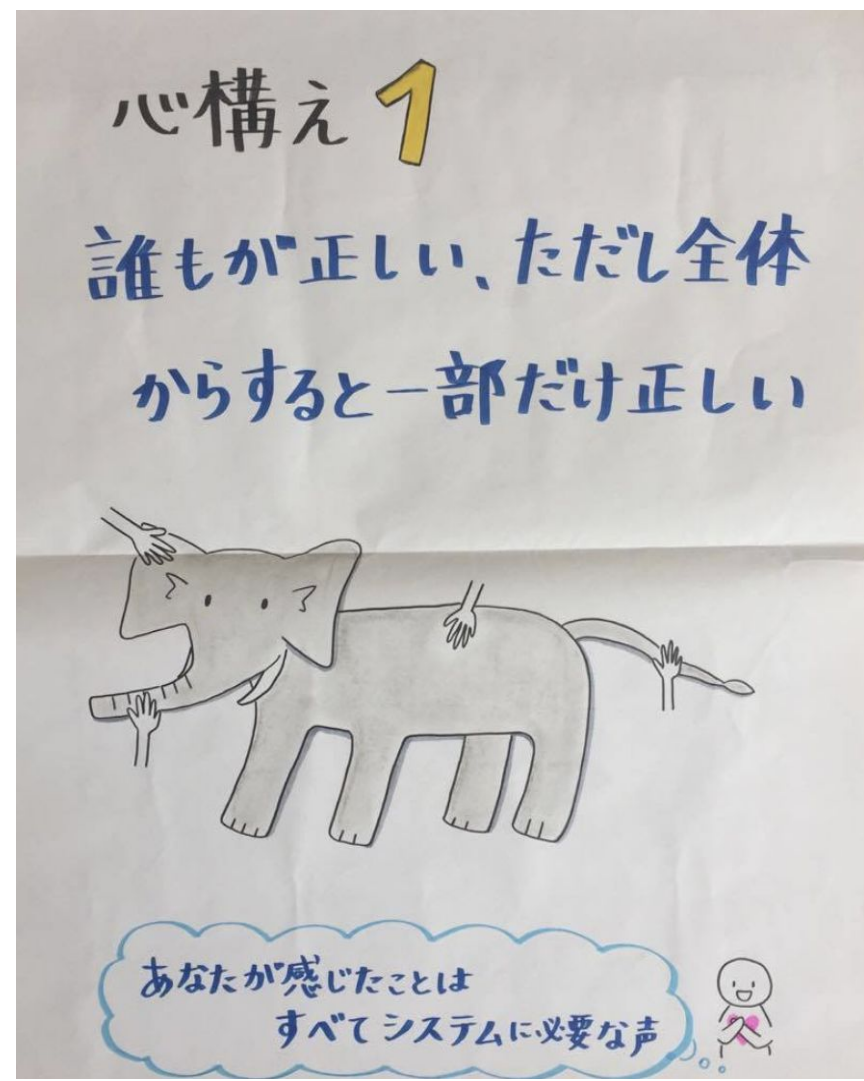 心構え1
誰もが正しい、ただし全体
からすると一部だけ正しい
あなたが感じたことは
すべてシステムに必要な声